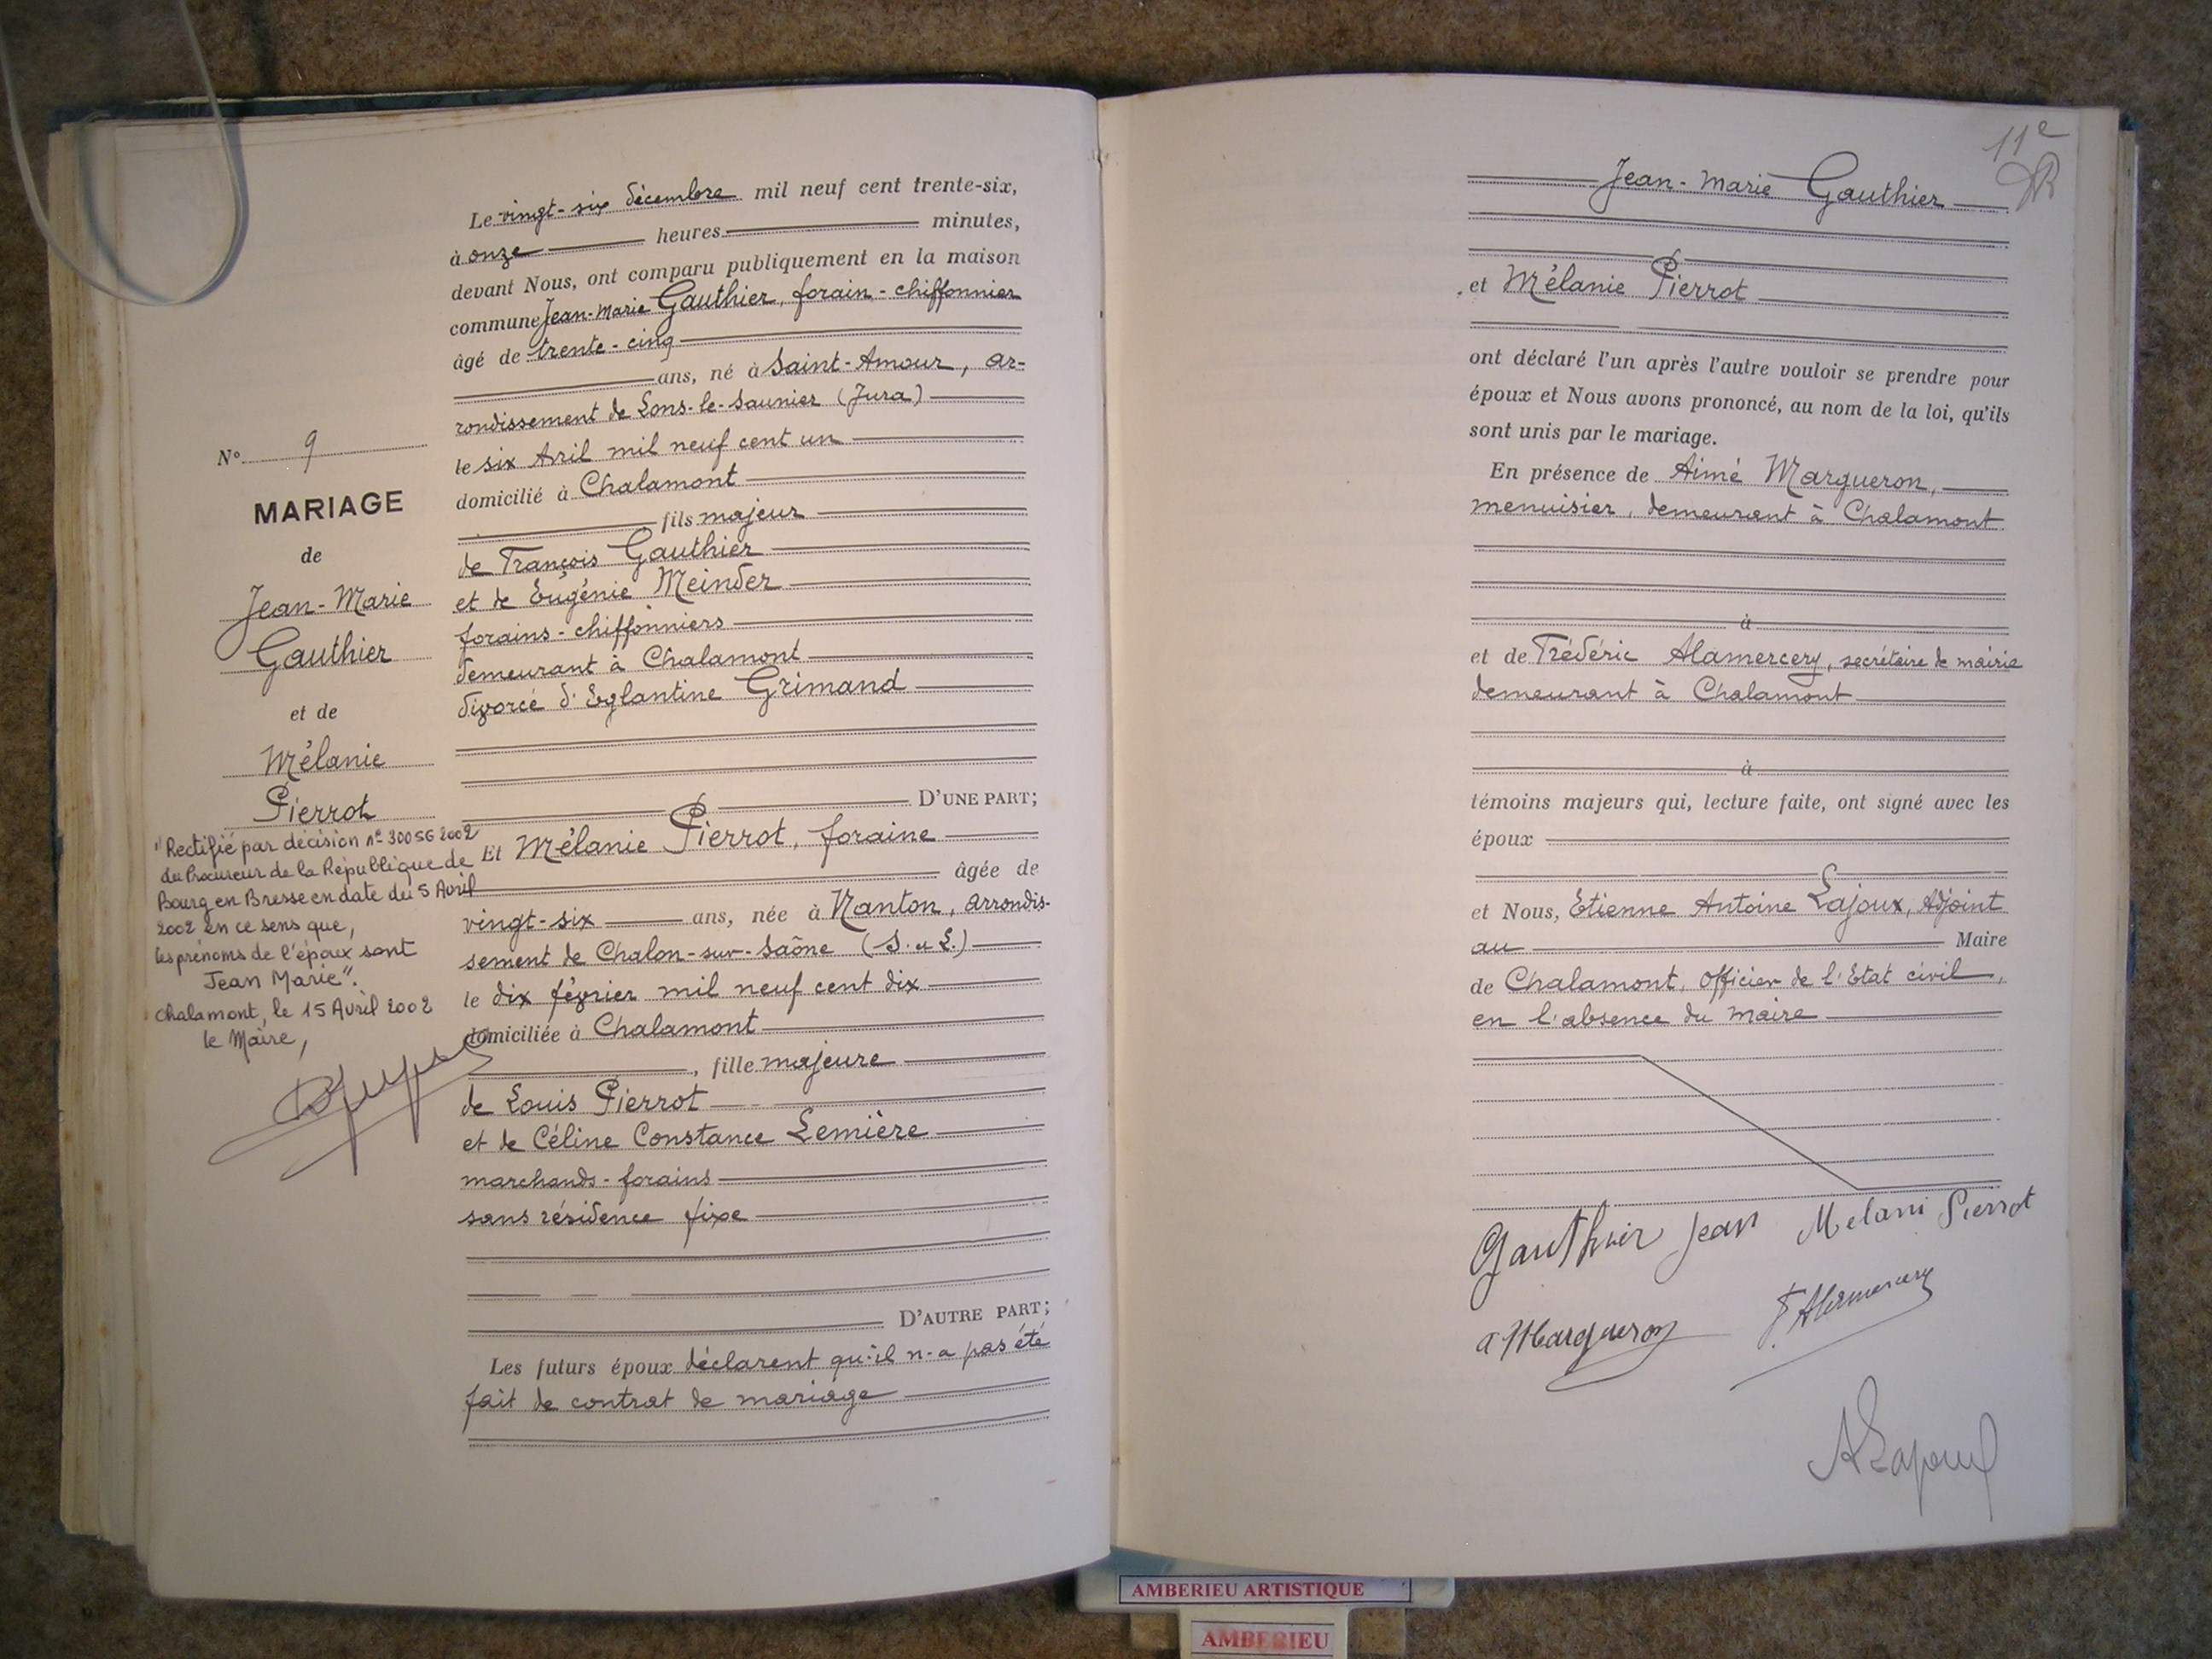 N° 9
MARIAGE
de
Jean-Marie
Gauthier
et de
Mélanie
Pierrot
"Rectifié par décision n° 30056 2002
du Procureur de la République de
Bourg en Bresse en date du 5 Avril
2002 en ce sens que,
les prénoms de l'époux sont
Jean Marie".
Chalamont, le 15 Avril 2002
le Maire,
Le vingt-six décembre mil neuf cent trente-six,
à onze heures minutes,
devant Nous, ont comparu publiquement en la maison
commune Jean-Marie Gauthier, forain-chiffonnier
âgé de trente-cinq
ans, né à Saint-Amour, ar-
rondissement de Lons-le-Saunier (Jura)
le six Avril mil neuf cent un
domicilié à Chalamont
fils majeur
de François Gauthier
et de Eugénie Meinder
forains-chiffonniers
demeurant à Chalamont
divorcé d'Eglantine Grimand
D'UNE PART;
Et Mélanie Pierrot, foraine
âgée de
vingt-six ans, née à Nanton, arrondis-
sement de Chalon-sur-Saône (S. et L.)
le dix février mil neuf cent dix
domiciliée à Chalamont
, fille majeure
de Louis Pierrot
et de Céline Constance Lemière
marchands-forains
sans résidence fixe
D'AUTRE PART;
Les futurs époux déclarent qu'il n'a pas été
fait de contrat de mariage
11e
Jean-Marie Gauthier
et Mélanie Pierrot
ont déclaré l'un après l'autre vouloir se prendre pour
époux et Nous avons prononcé, au nom de la loi, qu'ils
sont unis par le mariage.
En présence de Aimé Margueron,
menuisier, demeurant à Chalamont
à
et de Frédéric Alamercery, secrétaire de mairie
demeurant à Chalamont
à
témoins majeurs qui, lecture faite, ont signé avec les
époux
et Nous, Etienne Antoine Lajoux, Adjoint
au Maire
de Chalamont, Officier de l'Etat civil,
en l'absence du maire
Gauthier Jean Melani Pierrot
a Margueron F. Alamercery
A Lajoux
AMBERIEU ARTISTIQUE
AMBERIEU